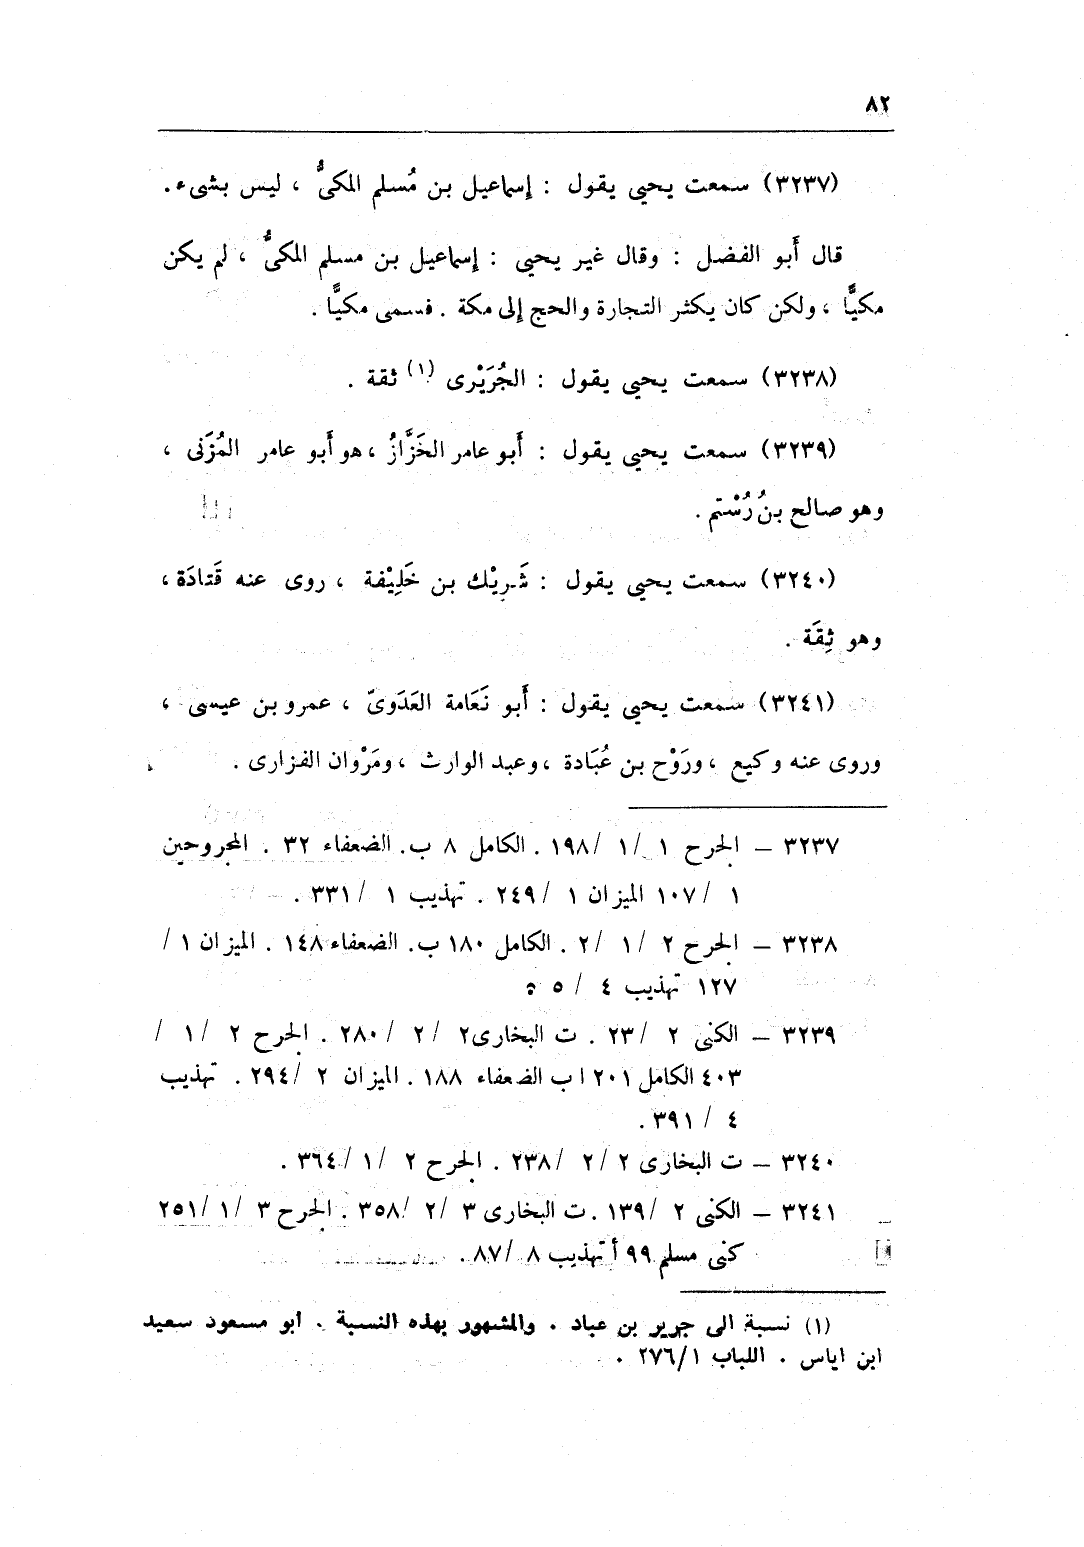 ٨٢
(٣٢٣٧) سمعت يحيى يقول : إسماعيل بن مُسلم المكىُّ ، ليس بشىء.
قال أَبو الفضل : وقال غير يحيى : إسماعيل بن مسلم المكىُّ ، لم يكن
مكيًّا ، ولكن كان يكثر التجارة والحج إلى مكة . فسمى مكيًّا .
(٣٢٣٨) سمعت يحيى يقول : الجُرَيْرى (١) ثقة .
(٣٢٣٩) سمعت يحيى يقول : أَبو عامر الخَزَّازُ ، هو أَبو عامر المُزَنى ،
وهو صالح بنُ رُسْتم .
(٣٢٤٠) سمعت يحيى يقول : شَرِيْك بن خَلِيْفة ، روى عنه قَتادَة ،
وهو ثِقَة .
(٣٢٤١) سمعت يحيى يقول : أَبو نَعَامة العَدَوىّ ، عمرو بن عيسى ،
وروى عنه وكيع ، ورَوْح بن عُبَادة ، وعبد الوارث ، ومَرْوان الفزارى .
٣٢٣٧ – الجرح ١ /١ /١٩٨ . الكامل ٨ ب. الضعفاء ٣٢ . المجروحين
١ /١٠٧ الميزان ١ /٢٤٩ . تهذيب ١ /٣٣١ .
٣٢٣٨ – الجرح ٢ /١ /٢ . الكامل ١٨٠ ب. الضعفاء ١٤٨ . الميزان ١ /
١٢٧ تهذيب ٤ / ٥
٣٢٣٩ – الكنى ٢ /٢٣ . ت البخارى ٢ /٢ /٢٨٠ . الجرح ٢ /١ /
٤٠٣ الكامل ٢٠١ ا ب الضعفاء ١٨٨ . الميزان ٢ /٢٩٤ . تهذيب
٤ / ٣٩١ .
٣٢٤٠ – ت البخارى ٢ /٢ /٢٣٨ . الجرح ٢ /١ /٣٦٤ .
٣٢٤١ – الكنى ٢ /١٣٩ . ت البخارى ٣ /٢ /٣٥٨ . الجرح ٣ /١ /٢٥١
كنى مسلم ٩٩ أ تهذيب ٨ /٨٧ .
(١) نسبة الى جرير بن عباد . والمشهور بهذه النسبة . ابو مسعود سعيد
ابن اياس . اللباب ٢٧٦/١ .